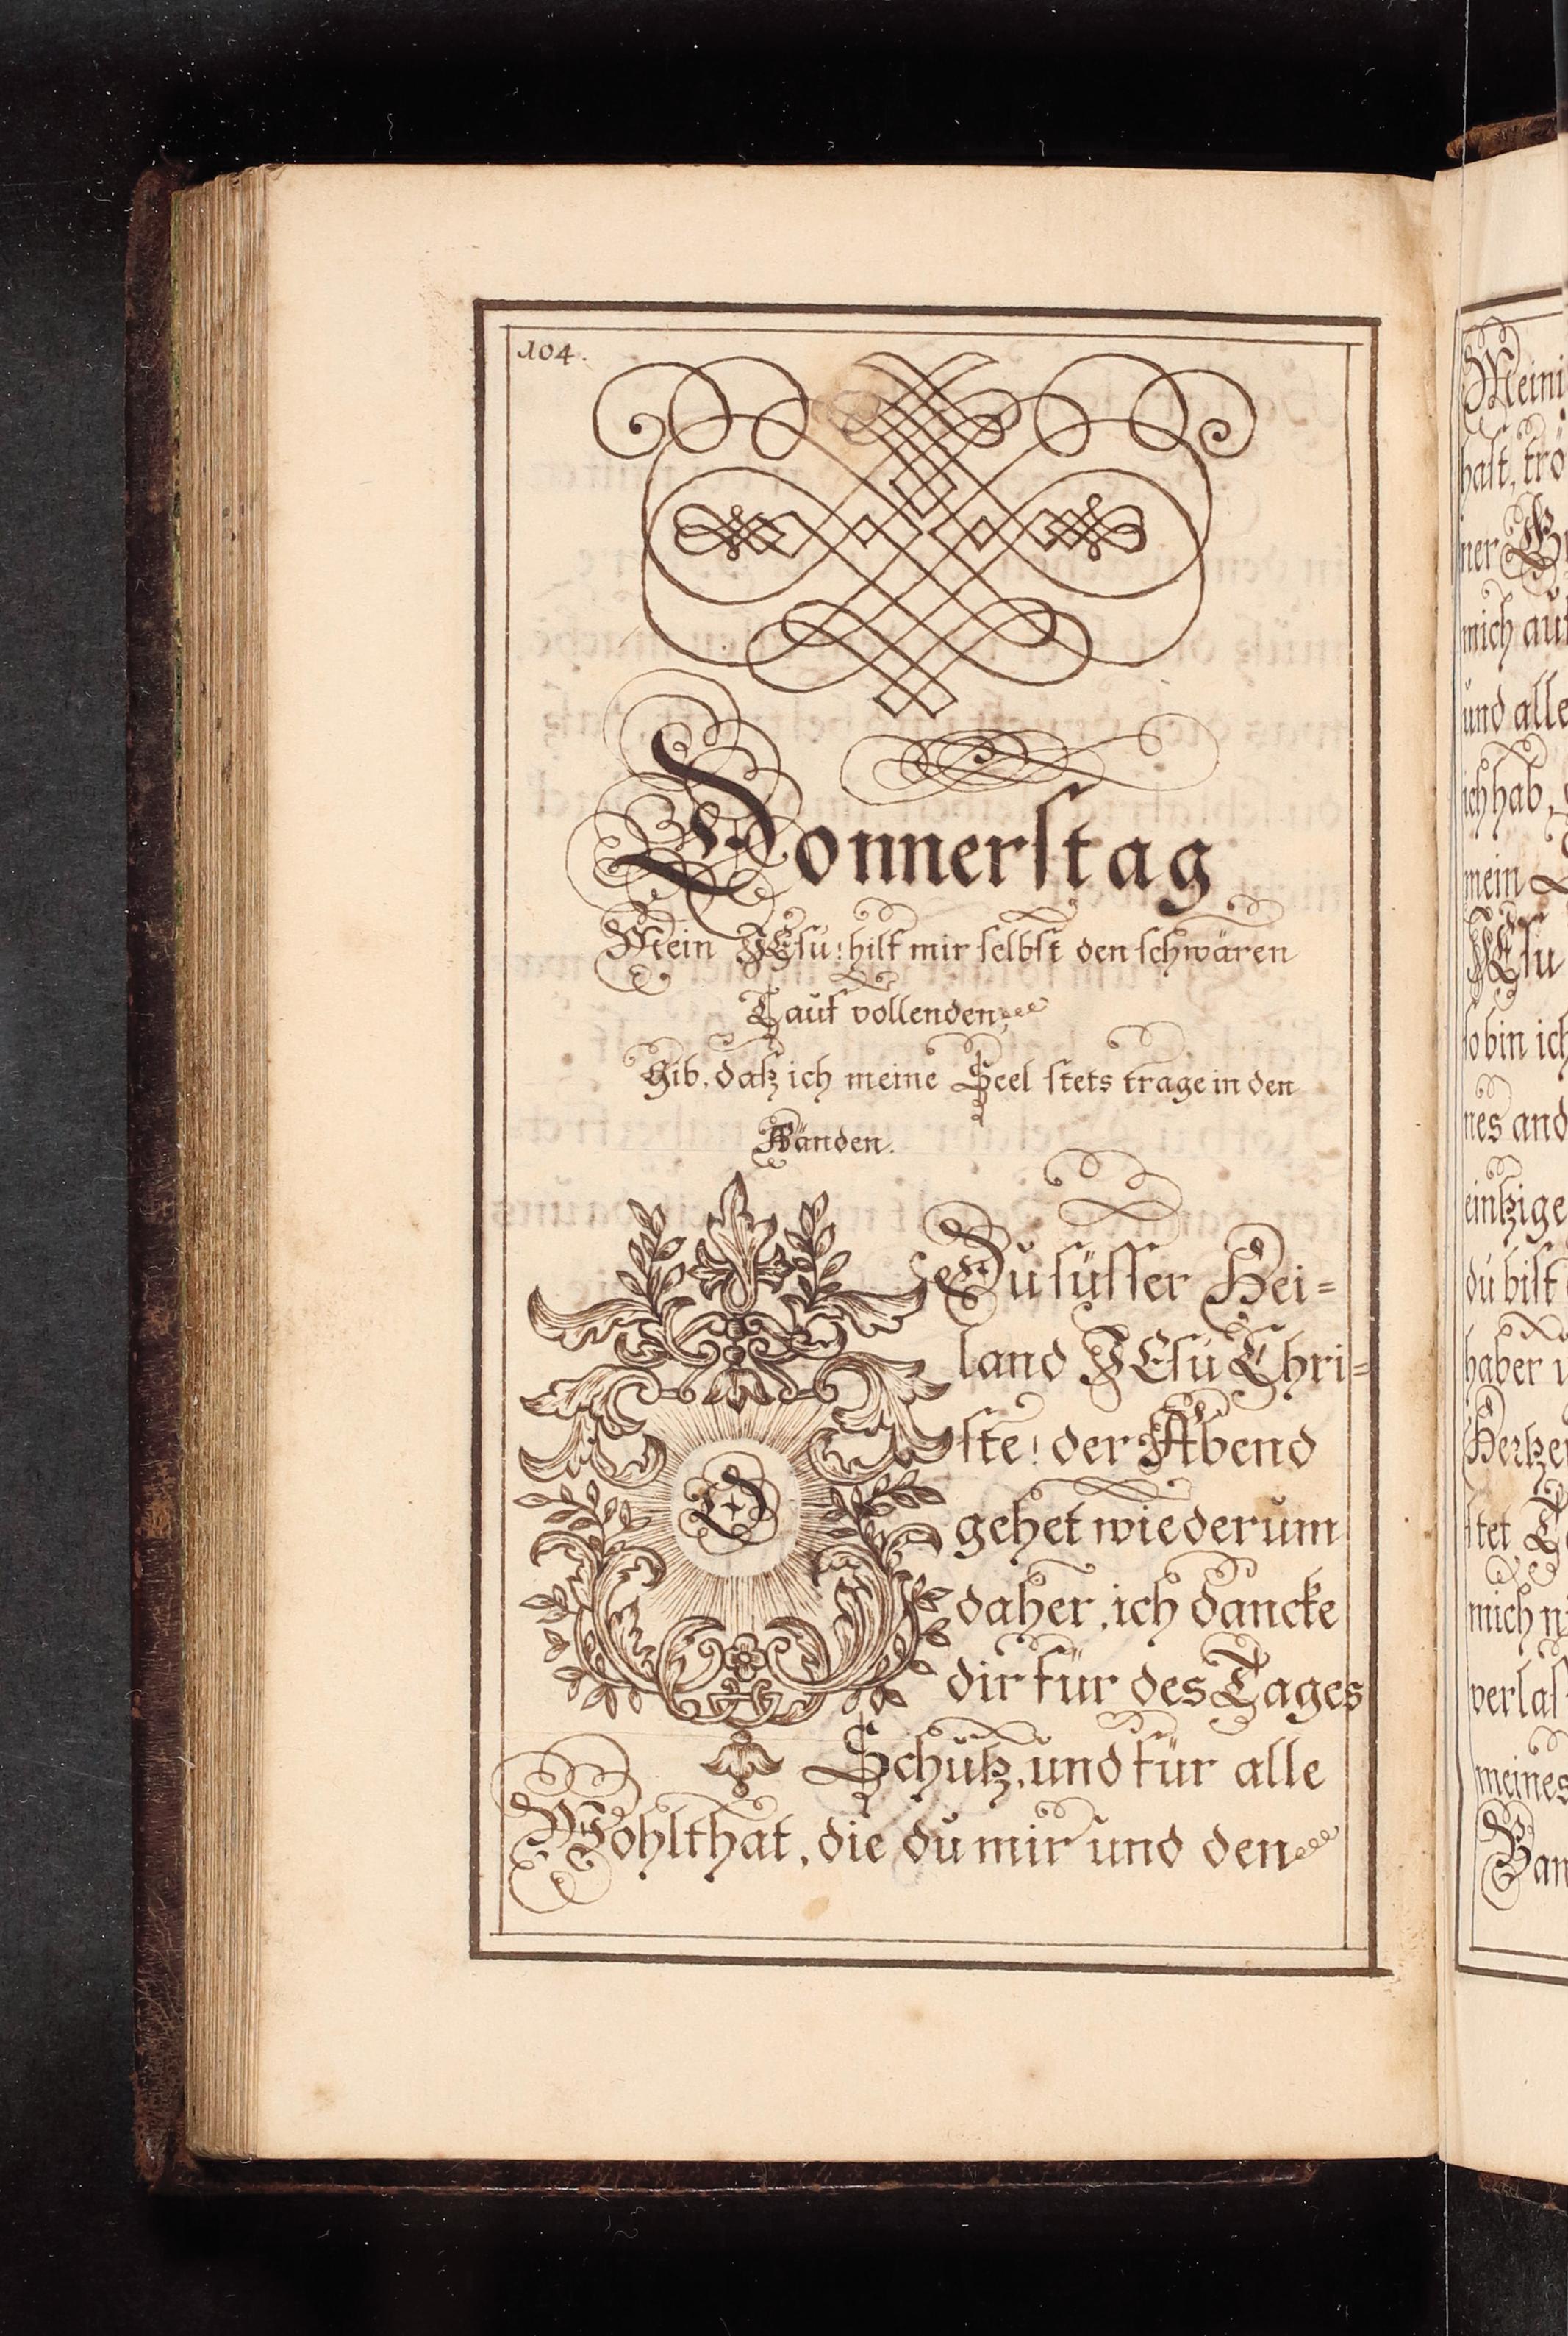 104.
Donnerſtag
Mein JEſu! hilf mir ſelbſt den ſchwären
Lauf vollenden,
Gib, daß ich meine Seel ſtets trage in den
Händen.
O
Du ſüſſer Hei=
land JEſu Chri=
ſte! der Abend
gehet wiederum
daher, ich dancke
dir für des Tages
Schutz, und für alle
Wohlthat, die du mir und den
Meini
haſt, trö
iner
mich auf
und alle
ich hab,
mein
JEſu
ſo bin ich
nes and
eintzige
du biſt
haber
Hertzen
ſtet
mich
verlaſ
meines